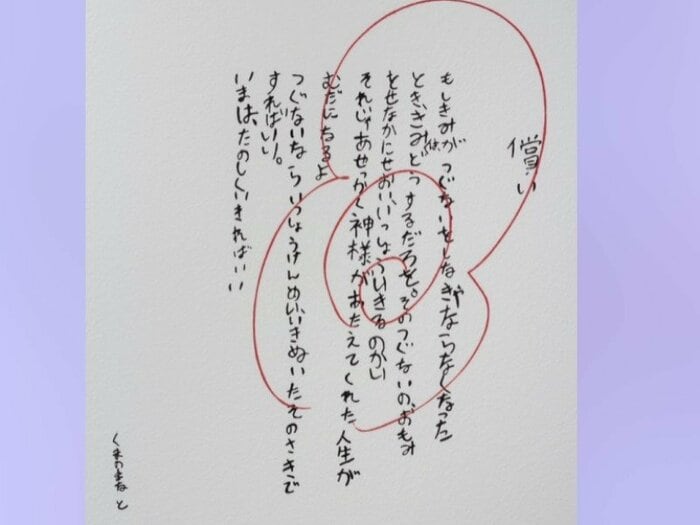 償い
もしきみが つぐないをしなきゃならなくなった
とき、きみは、どうするだろを。そのつぐないの、おもみ
をせなかにせおい、いっしょう、いきるのかい
それじゃあせっかく神様があたえてくれた人生が
むだになるよ
つぐないなら いっしょうけんめい、いきぬいたそのさきで
すればいい。
いまは、たのしくいきればいい
くまのまなと